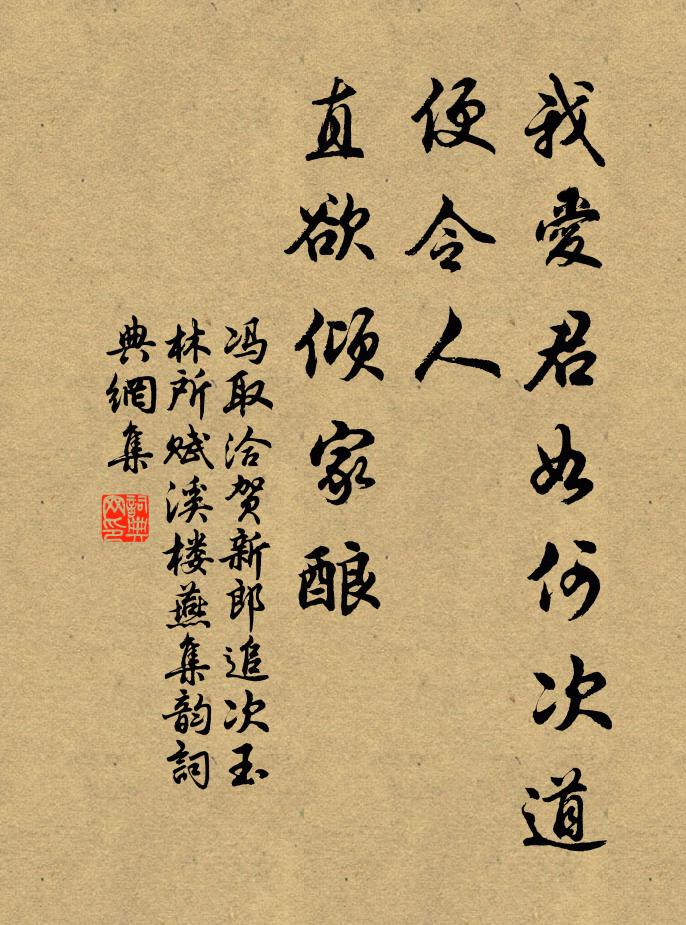 我愛君如何次道
便令人
直欲倾家酿
冯取洽贺新郎追次玉
林所赋溪楼燕集韵詞
典網集
詞典
网印